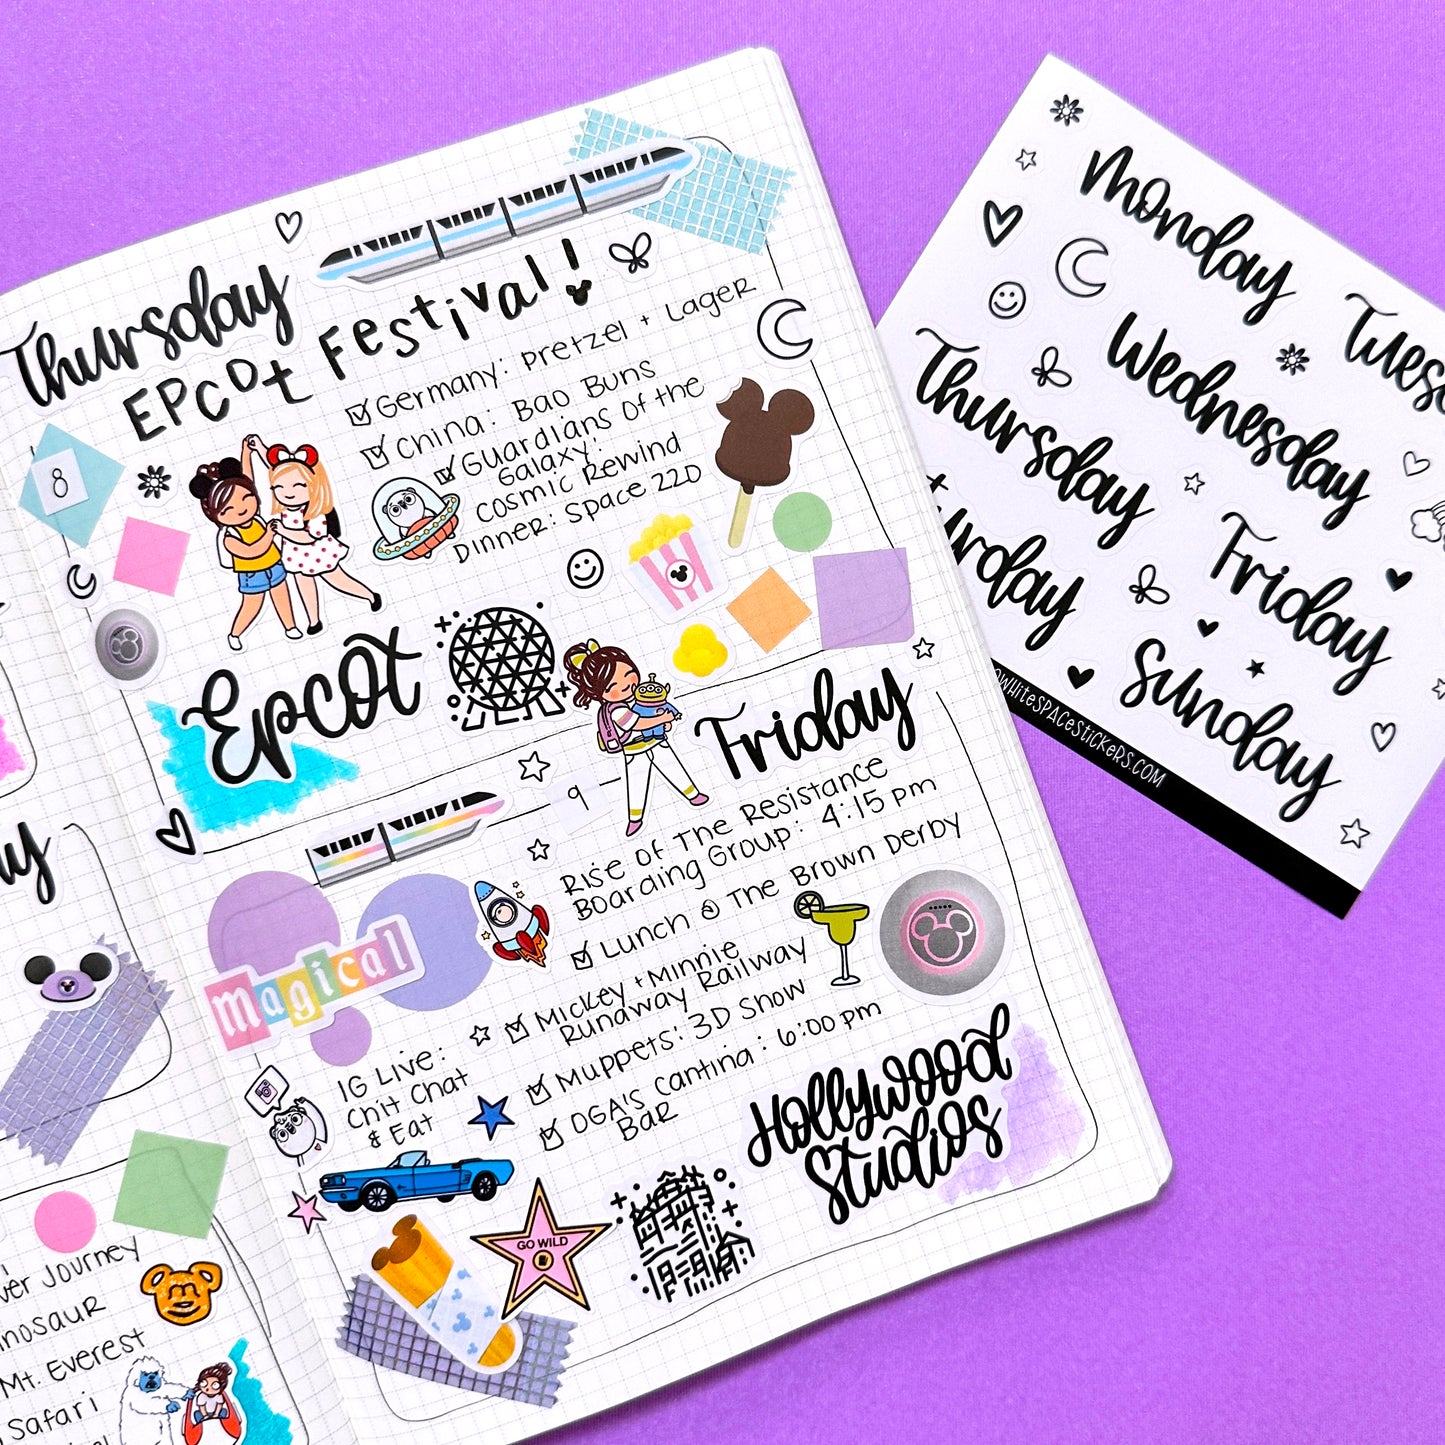 Thursday
EPCOT FESTIVAL!
Germany: Pretzel + Lager
China: Bao Buns
Guardians of the
Galaxy:
Cosmic Rewind
Dinner: Space 220
8
Epcot
Friday
9
Rise of The Resistance
Boarding Group: 4:15 pm
Lunch @ The Brown Derby
Mickey + Minnie
Runaway Railway
Muppets: 3D Show
OGA's Cantina: 6:00 pm
Bar
magical
IG Live:
Chit Chat
& Eat
GO WILD
Hollywood
Studios
ay
ver Journey
inosaur
Mt. Everest
Safari
Monday
Tuesd
Wednesday
Thursday
Friday
urday
Sunday
OWHITESPACESTICKERS.COM